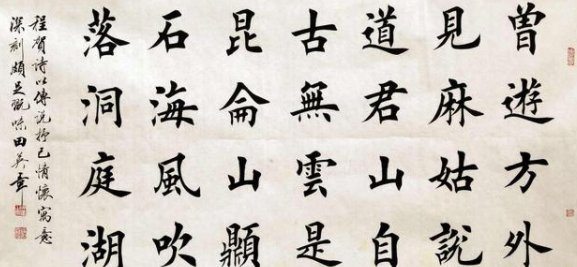 曾遊方外
見麻姑說
道君山自
古無雲是
昆侖山顛
石海風吹
落洞庭湖
程賀詩以傳說抒己情懷寓意
深刻頗足玩味田英章